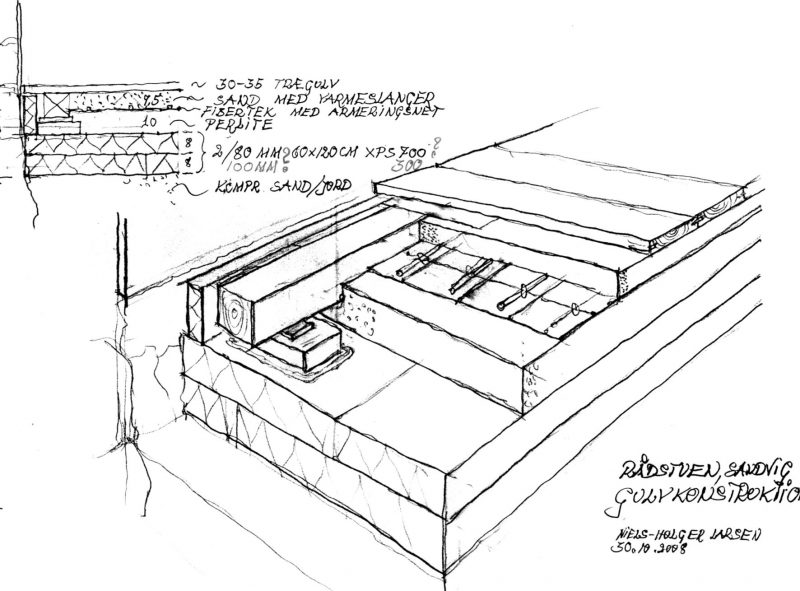 30-35 TRÆGULV
7,5
SAND MED VARMESLANGER
FIBERTEK MED ARMERINGSNET
10
PERLITE
8
2/80 MM? 60X120CM XPS 700?
8
100MM? 300
KOMPR SAND/JORD
RÅDSTUEN, SANDVIG
GULVKONSTRUKTIO
NIELS-HOLGER LARSEN
30.10.2008